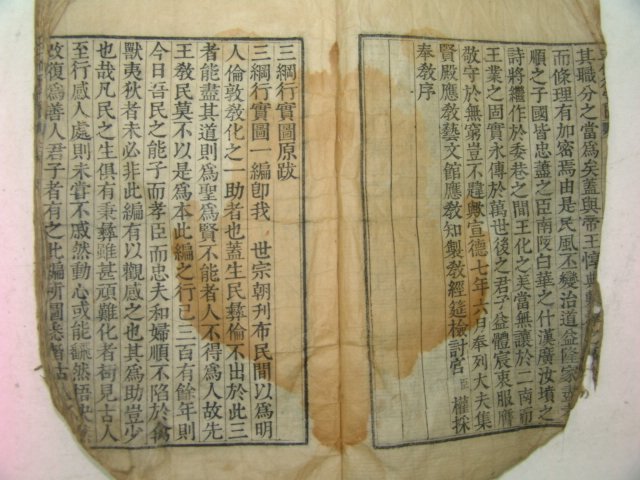 其職分之當爲矣蓋與帝王惇典
而條理有加密焉由是民風丕變治道益隆家
順之子國皆忠藎之臣南陔白華之什漢廣汝墳之
詩將繼作於委巷之間王化之美當無讓於二南而
王業之固實永傳於萬世後之君子益體宸衷服膺
敬守於無窮豈不韙歟宣德七年六月奉列大夫集
賢殿應敎藝文館應敎知製敎經筵檢討官臣權採
奉敎序
三綱行實圖原跋
三綱行實圖一編卽我 世宗朝刊布民間以爲明
人倫敦敎化之一助者也蓋生民彝倫不出於此三
者能盡其道則爲聖爲賢不能者人不得爲人故先
王敎民莫不以是爲本此編之行已三百有餘年則
今日吾民之能子而孝臣而忠夫和婦順不陷於禽
獸夷狄者未必非此編有以觀感之也其爲助豈少
也哉凡民之生俱有秉彝雖甚頑難化者苟見古人
至行感人處則未甞不戚然動心或能飜然悟
改復爲善人君子者有之此編所圖